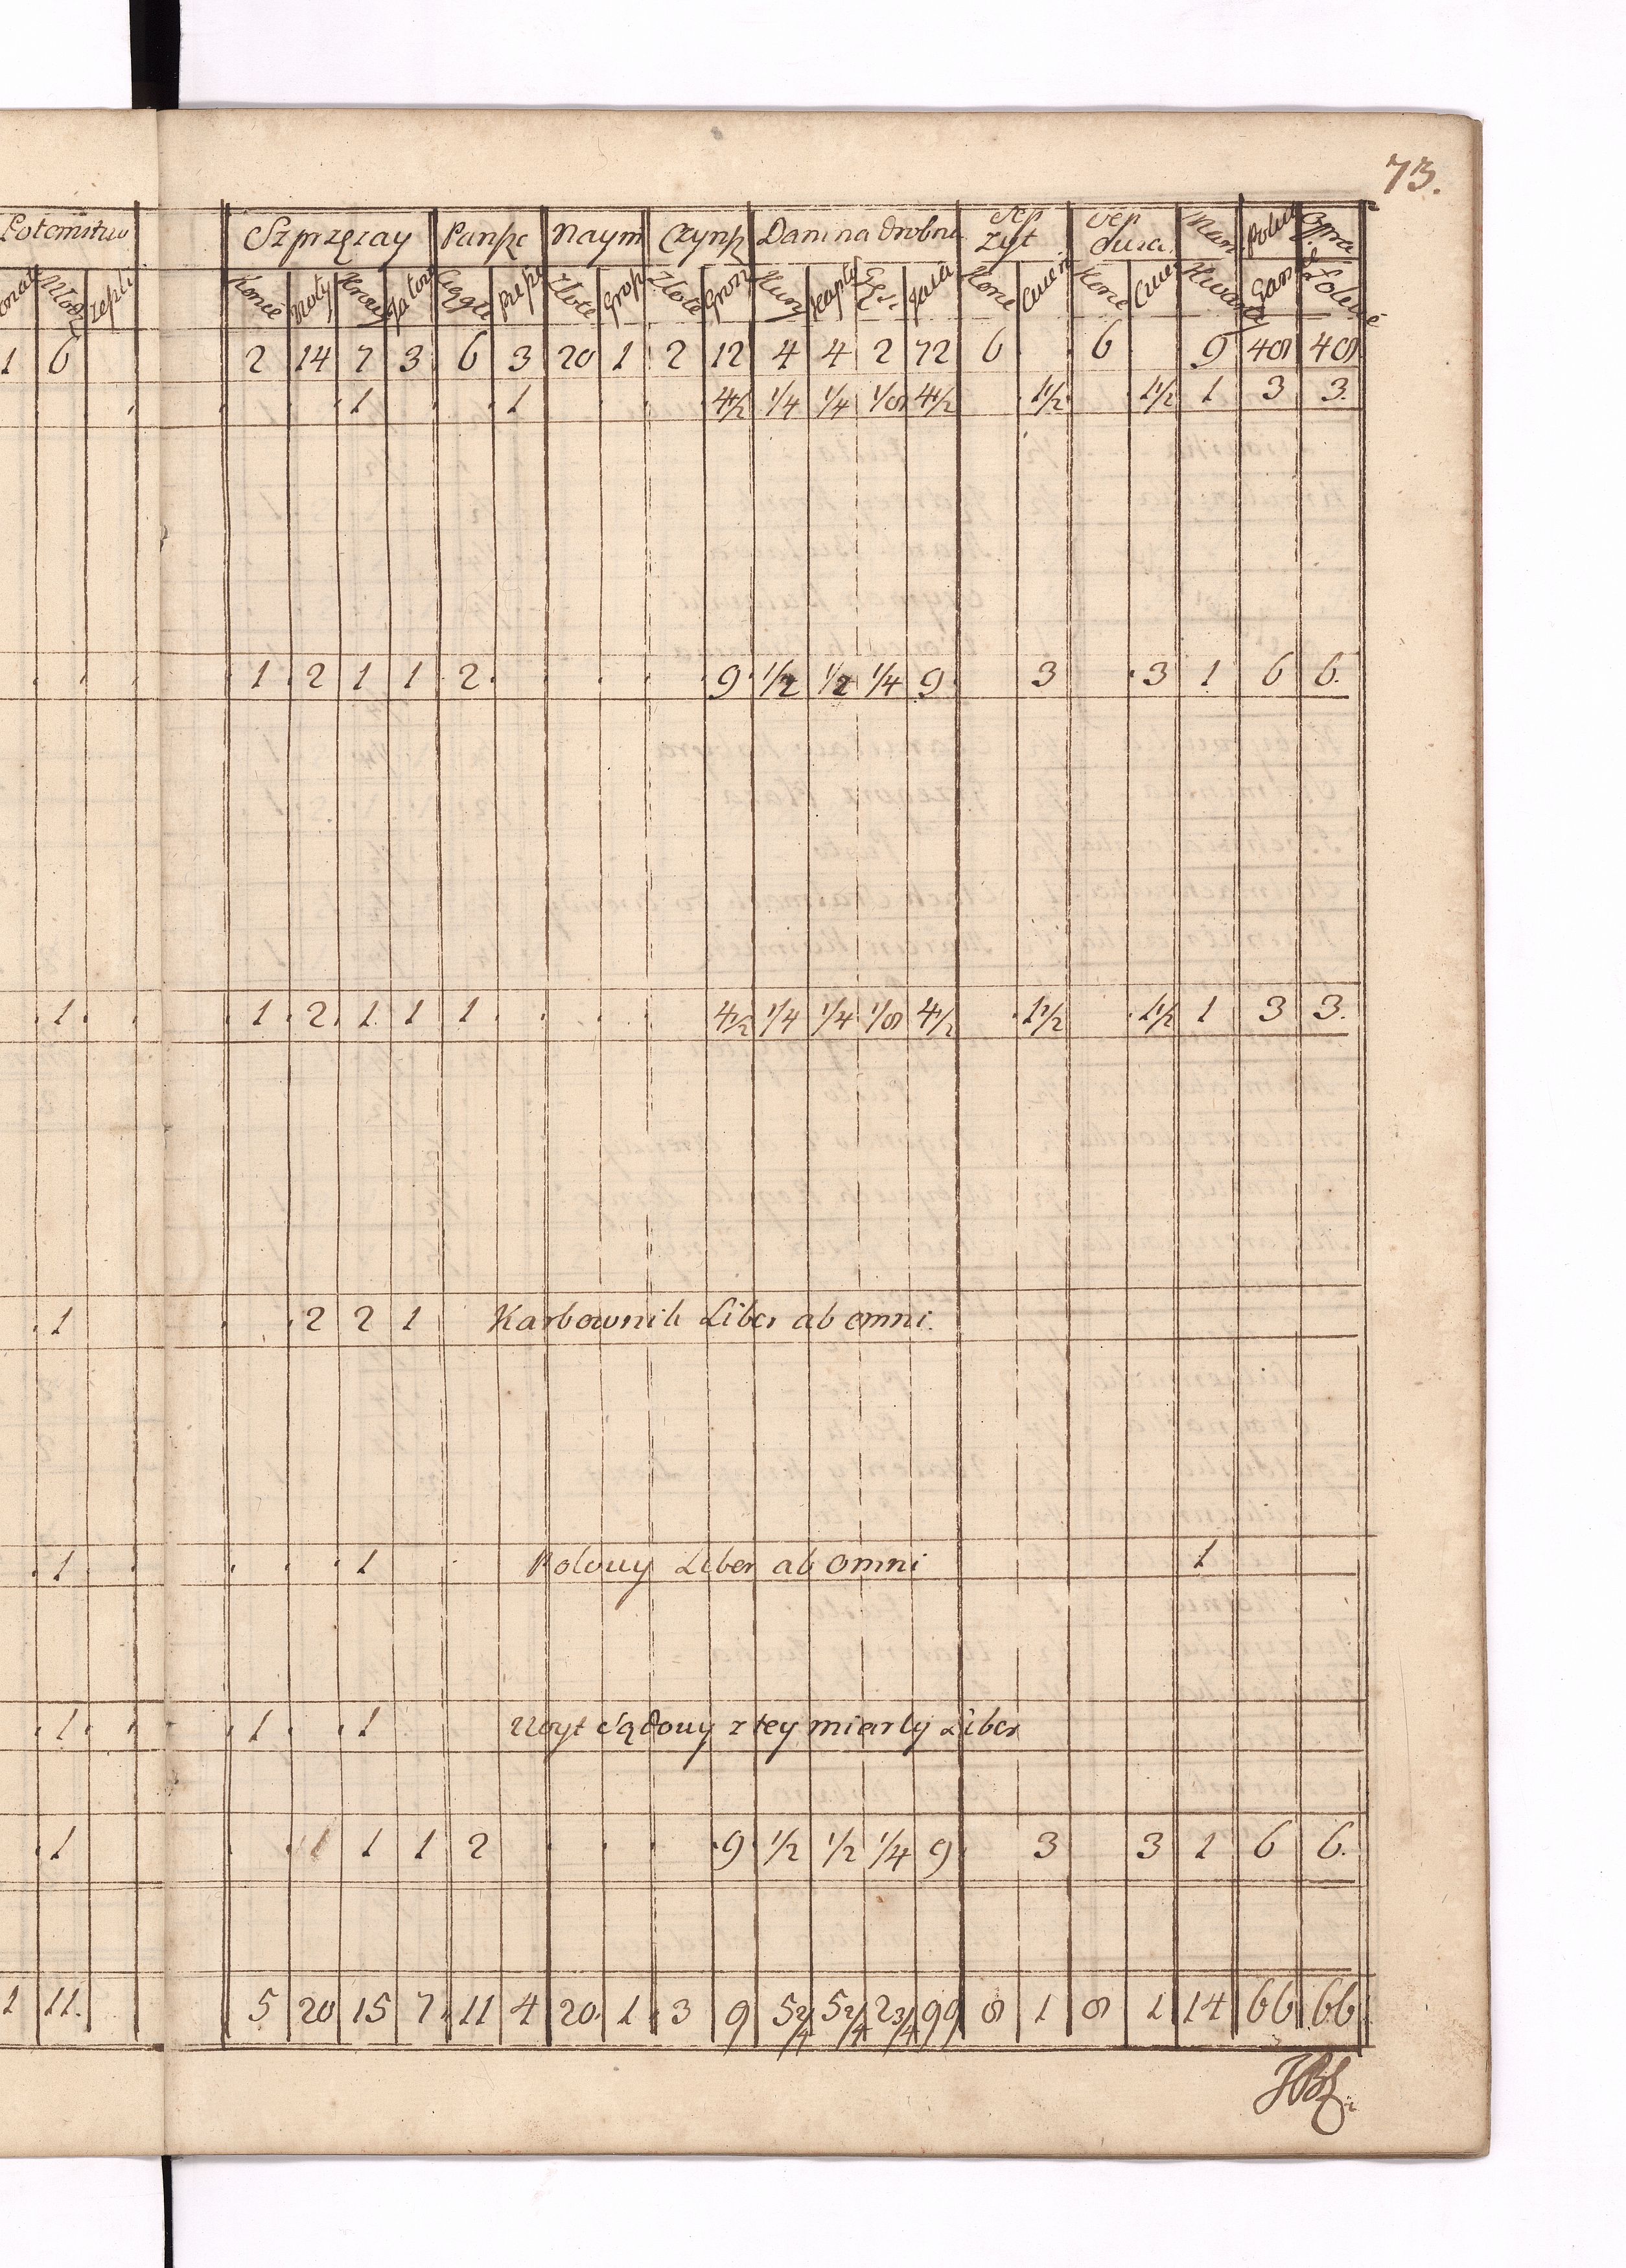 73.
Potomstwo Szprzęzay Pansz Naym Czynsz Danina drobna Sep Zyt Sep owsa
Młodz Zepli Konie Woły Krowy Jałow Ciągłe Piesze Złote Grosz Złote Grosz Kury Kapły Gęsi Jaia Korce Cwier Korce Cwier
1 6 2 14 7 3 6 3 20 1 2 12 4 4 2 72 6 6 9 48 48
1 1 4½ ¼ ¼ ⅛ 4½ 1½ 1½ 1 3 3.
1 2 1 1 2 9 ½ ½ ¼ 9 3 3 1 6 6.
1 1 2 1 1 1 4½ ¼ ¼ ⅛ 4½ 1½ 1½ 1 3 3.
1 2 2 1 Karbownik Liber ab omni.
1 1 Polowy Liber ab Omni 1
1 1 1 Woyt Sądowy z tey miarky Liber
1 1 1 1 2 9 ½ ½ ¼ 9 3 3 1 6 6.
1 11. 5 20 15 7 11 4 20 1 3 9 5 2/4 5 2/4 2 3/4 99 8 1 8 1 14 66 66